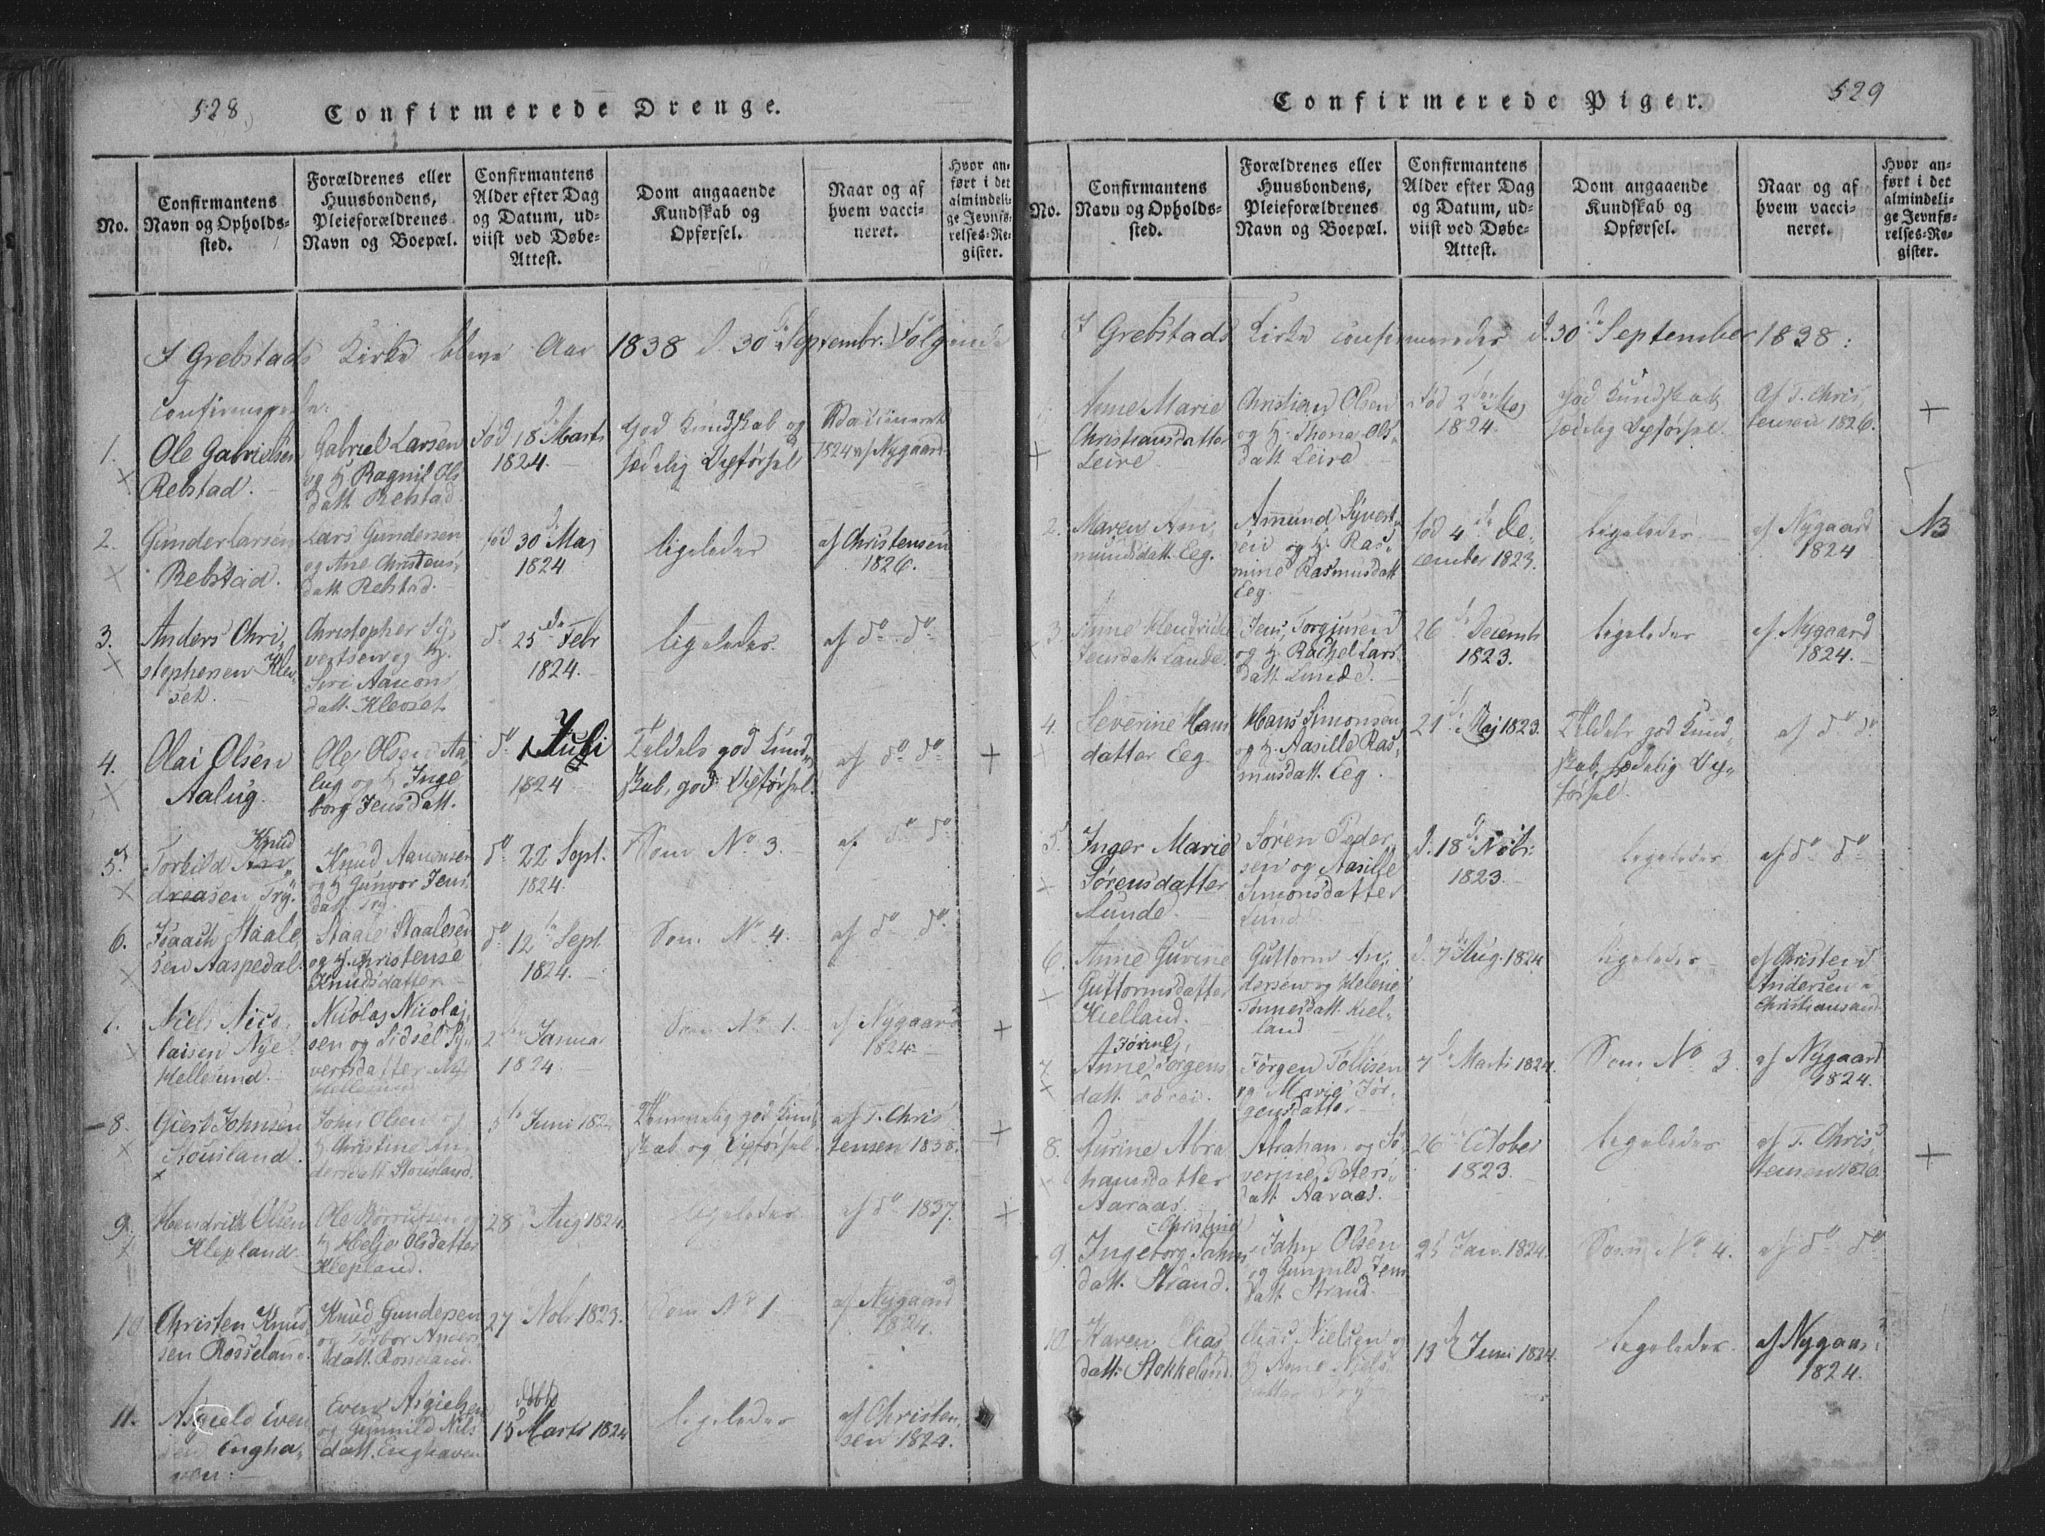 528.
Confirmerede Drenge.
No.
Confirmantens
Navn og Opholds-
sted.
Forældrenes eller
Huusbondens,
Pleieforældrenes
Navn og Boepæl.
Confirmantens
Alder efter Dag
og Datum, ud-
viist ved Døbe-
Attest.
Dom angaaende
Kundskab og
Opførsel.
Naar og af
hvem vacci-
neret.
Hvor an-
ført i det
almindeli-
ge Jevnfø-
relses-Re-
gister.
I Grebstads Kirke bleve Aar 1838 d. 30te Septembr. Følgende
Confirmerede:
1.
Ole Gabrielsen
Rebstad.
Gabriel Larsen
og H. Ragnil Ols
datt. Rebstad
Fød 18de Marts
1824.
God Kundskab og
sædelig Opførsel
Vaccineret
1824 af Nygaard
2.
Gunder Larsen
Rebstad.
Lars Gundersen
og Ane Christens
datt. Rebstad.
fød 30de Maj
1824
ligeledes
af Christensen
1826.
3.
Anders Chri,
stophersen Klev-
set.
Christopher Sy,
vertsen og H.
Siri Aanon
datt. Klevset.
do 25de Febr
1824.
ligeledes.
af do do
4.
Olai Olsen
Aalug.
Ole Olsen Aa,
lug og H. Inge
borg Jensdatt.
do 1 Juli
1824
Teldels god Kund-
skab, god Opførsel.
af do do
+
5.
Knud
Torkild An,
dreasen Try
Knud Aanensen
og H Gunvor Jens
datt Try.
do 22 Sept.
1824.
Som No 3.
af do do
6.
Isaach Staale,
sen Aaspedal.
Staale Staalesen
og H. Christense
Knudsdatter
do 12te Sept
1824.
Som No 4.
af do do
7.
Niels Nico,
laisen Nye
Hellesund.
Nicolai Nicolai,
sen og Sidsel Sy,
vertsdatter Ny
Hellesund
2den Januar
1824.
Som No 1.
af Nygaard
1824.
+
8.
Giert Johnsen
Stousland.
John Olsen og
H Christine An,
dersdatt Stousland.
5te Juni 182
Temmelig god Kund
skab og Opførsel.
af T. Chris
tensen 1838.
+
9.
Hendrik Olsen
Klepland.
Ole
H Helje Olsdatter
Klepland.
28 Aug 1824.
ligeledes
af do 1837.
+
10
Christen Knud
sen Rosseland.
Knud Gundersen
og Torbor Anders
datt. Rosseland.
27 Nobr 1823.
Som No 1
af Nygaard
1824.
11.
Asgield Even
sen Engha-
ven.
Even Asgieldsen
og Gunnild Niels
datt. Enghaven
15 Marts 1824
ligeledes
af Christen,
sen 1824.
529
Confirmerede Piger.
No.
Confirmantens
Navn og Opholds-
sted.
Forældrenes eller
Huusbondens,
Pleieforældrenes
Navn og Boepæl.
Confirmantens
Alder efter Dag
og Datum, ud-
viist ved Døbe-
Attest.
Dom angaaende
Kundskab og
Opførsel.
Naar og af
hvem vacci-
neret.
Hvor an-
ført i det
almindeli-
ge Jevnfø-
relses-Re-
gister.
I Grebstads Kirke confirmeredes d. 30te September 1838:
1.
Anne Marie
Christiansdatter
Leire.
Christian Olsen
og H. Thona Ols
datt Leire
Fød 2den Maj
1824.
God Kundskab
sædelig Opførsel.
Af T. Chris,
tensen 1826.
+
2.
Maren Am,
mundsdatt. Eeg.
Amund Syvert
sen og H. Ras,
mine Rasmusdatt
Eeg.
fød 4de De,
cember 1823.
ligeledes
af Nygaard
1824
NB
3
Anne Hendrikke
Jensdatt. Lunde.
Jens Torgjusen
og H. Rachel Lars
datt. Lunde.
26de Decembr
1823.
ligeledes
af Nygaard
1824.
4.
Severine Hans
datter Eeg.
Hans Simonsen
og H. Aasille Ras,
musdatt. Eeg.
21de Maj 1823.
Tildels god Kund,
skab, sædelig Op,
førsel.
af do do
5.
Inger Marie
Sørensdatter
Lunde.
Søren Peder
sen og Aasille
Simonsdatter
Lund
d. 18de Nobr.
1823.
ligeledes
af do do
6.
Anne Gurine
Guttormsdatter
Kielland.
Guttorm An,
dersen og Helene
Tønnesdatt. Kiel-
land
d. 7de Aug. 1824
ligeledes
af Christen
Andersen
Christiansand
7.
Jørine,
Anne Jørgens
datt.
Jørgen Tollisen
og Marie Jør,
gensdatter
7de Marts 1824.
Som No 3.
af Nygaard
1824.
8.
Gurine Abra
hamsdatter
Aaraas.
Abraham og Se,
verine Peters
datt Aaraas.
26 October
1823.
ligeledes
af T. Chris,
tensen 1826
+
9.
Christine
Ingeborg Jahns
datt. Strand.
Jahn Olsen
og Gunnild Jens
datt. Strand.
25 Jan. 1824.
Som No 4.
af do do
10.
Karen Elias
datt. Stokkeland.
Elias Nielsen og
H Anne Niels
datter Try
13de Juni 1824.
ligeledes
af Nygaard
1824.